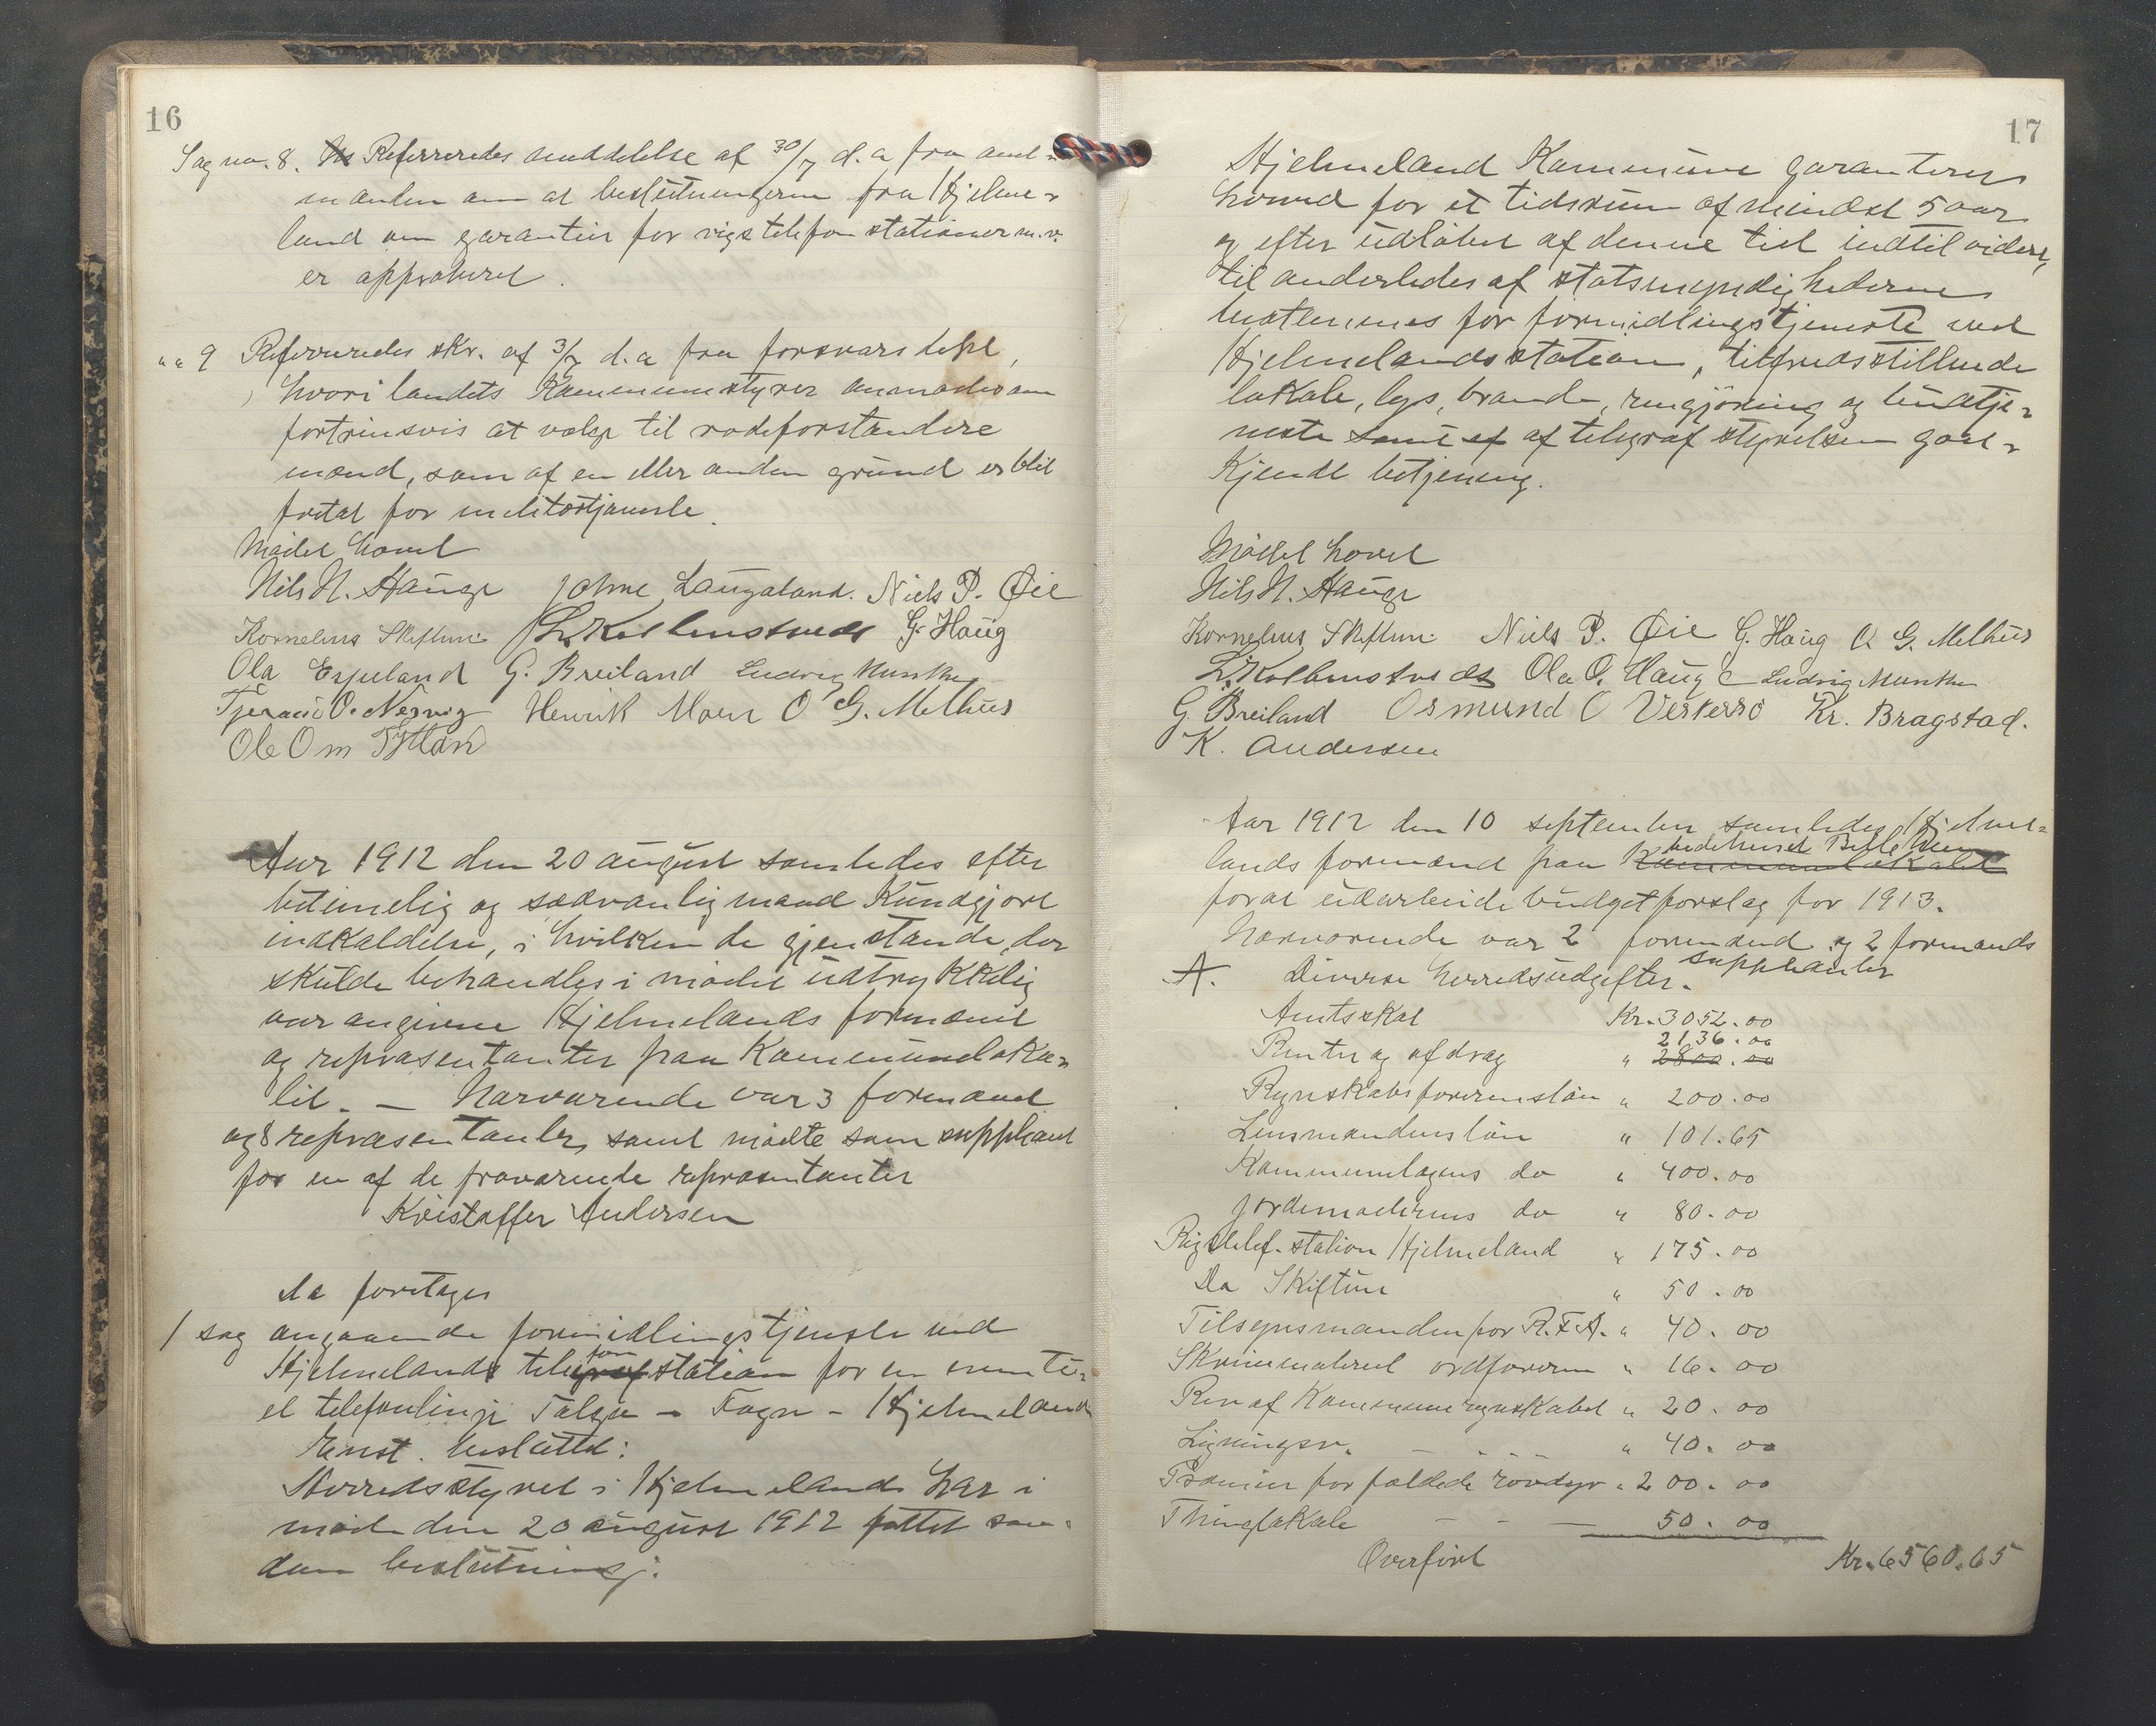 16
Sag no. 8. Referreredes meddelelse af 30/7 d.a fra amt-
manden om at beslutningerne fra Hjelme-
land om garantier for rigstelefonstationer m.v.
er approberet.
" " 9 Refereredes skr. af 3/7 d.a fra forsvarsdept,
hvori landets Kommunestyrer anmodes om
fortrinsvis at vælge til rodeforstandere
mænd, som af en eller anden grund er blit
fritat for militærtjeneste.
Mødet hævet
Nils N. Hauge Johne Laugaland. Niels P. Øie
Kornelius Skiftun L. Kolbenstvedt G. Haug
Ola Espeland G. Breiland Ludvig Munthe
Tjerand O. Nesvig Henrik Moen O G. Melhus
Ole Om Tytlan
Aar 1912 den 20 august samledes efter
betimelig og sædvanlig maade Kundgjort
indkaldelse, i hvilken de gjenstande, der
skulde behandles i mødet udtrykkelig
var angivne Hjelmelands formænd
og repræsentanter paa Kommuneloka-
let. — Nærværende var 3 formænd
og 8 repræsentanter, samt mødte som suppleant
for en af de fraværende repræsentanter
Kristoffer Andersen
Da foretages
1 sag angaaende formidlingstjeneste ved
Hjelmelands telegrafstation for en eventu-
fon
el telefonlinje Talgø - Fogn - Hjelmeland
Enst. besluttet:
Herredsstyret i Hjelmeland har i
møte den 20 august 1912 fattet saa-
dan beslutning:
17
Hjelmeland Kommune garanterer
herved for et tidsrum af mindst 5 aar
og efter udløbet af denne tid indtil videre,
til anderledes af statsmyndighederne
bestemmes for formidlingstjeneste ved
Hjelmelands station, tilfredsstillende
lokale, lys, brænde, rengjøring og budtje-
neste samt ef af telegrafstyrelsen god-
Kjendt betjening.
Mødet hævet
Nils N. Hauge
Kornelius Skiftun Niels P. Øie G. Haug O. G. Melhus
L. Kolbenstvedt Ola O. Hauge Ludvig Munthe
G. Breiland Osmund O Veskersø Kr. Bragstad.
K. Andersen
Aar 1912 den 10 september samledes Hjelme-
bedehuset Bethlehem
lands formænd paa Kommunelokalet
forat udarbeide budgetforslag for 1913.
Nærværende var 2 formænd og 2 formands
suppleanter
A. Diverse herredsudgifter.
Amtsskat Kr. 3052.00
2136.00
Renter og afdrag " 2800.00
Regnskabsførerens løn " 200.00
Lensmandens løn " 101.65
Kommunelægens do " 400.00
Jordemoderens do " 80.00
Rigstelef. station Hjelmeland " 175.00
Do Skiftun " 50.00
Tilsynsmanden for R.F.A. " 40.00
Skrivemateriel ordføreren " 16.00
Rev af Kommuneregnskabet " 20.00
Ligningsv. — - - - " 40.00
Præmier for fældede rovdyr " 200.00
Thinglokale - - — 50.00
Overført Kr. 6560.65